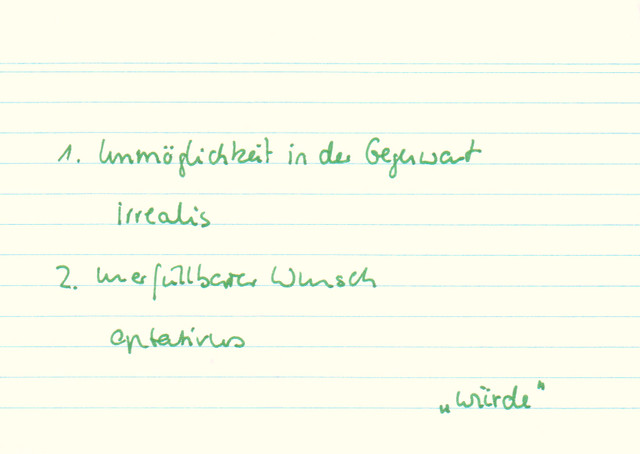 1. Unmöglichkeit in der Gegenwart
irrealis
2. unerfüllbarer Wunsch
optativus
„würde“